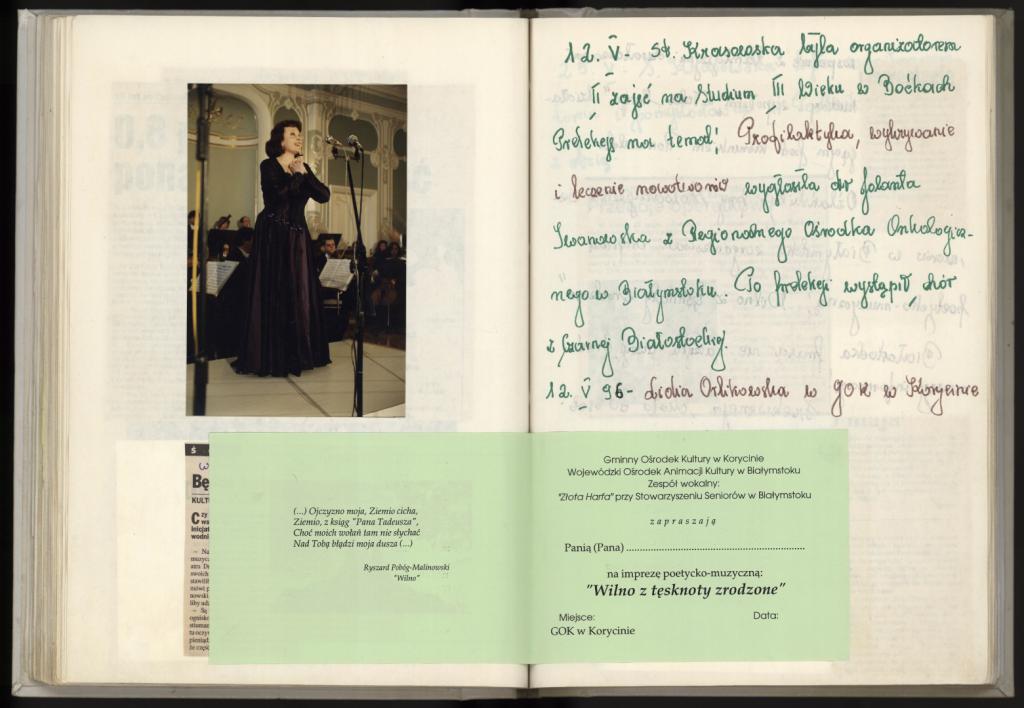 12. V - St. Krasowska była organizatorem
II zajęć na Studium III Wieku w Boćkach
Prelekcję na temat: Profilaktyka, wykrywanie
i leczenie nowotworów wygłosiła dr Jolanta
Iwanowska z Regionalnego Ośrodka Onkologicz-
nego w Białymstoku. Po prelekcji wystąpił chór
z Czarnej Białostockiej.
12. V 96 - Lidia Orlikowska w GOK w Korycinie
Ś
Bę
KULT
(...) Ojczyzno moja, Ziemio cicha,
Ziemio, z ksiąg "Pana Tadeusza",
Choć moich wołań tam nie słychać
Nad Tobą błądzi moja dusza (...)
Ryszard Pobóg-Malinowski
"Wilno"
Gminny Ośrodek Kultury w Korycinie
Wojewódzki Ośrodek Animacji Kultury w Białymstoku
Zespół wokalny:
"Złota Harfa" przy Stowarzyszeniu Seniorów w Białymstoku
zapraszają
Panią (Pana) ..............................................................
na imprezę poetycko-muzyczną:
"Wilno z tęsknoty zrodzone"
Miejsce: Data:
GOK w Korycinie